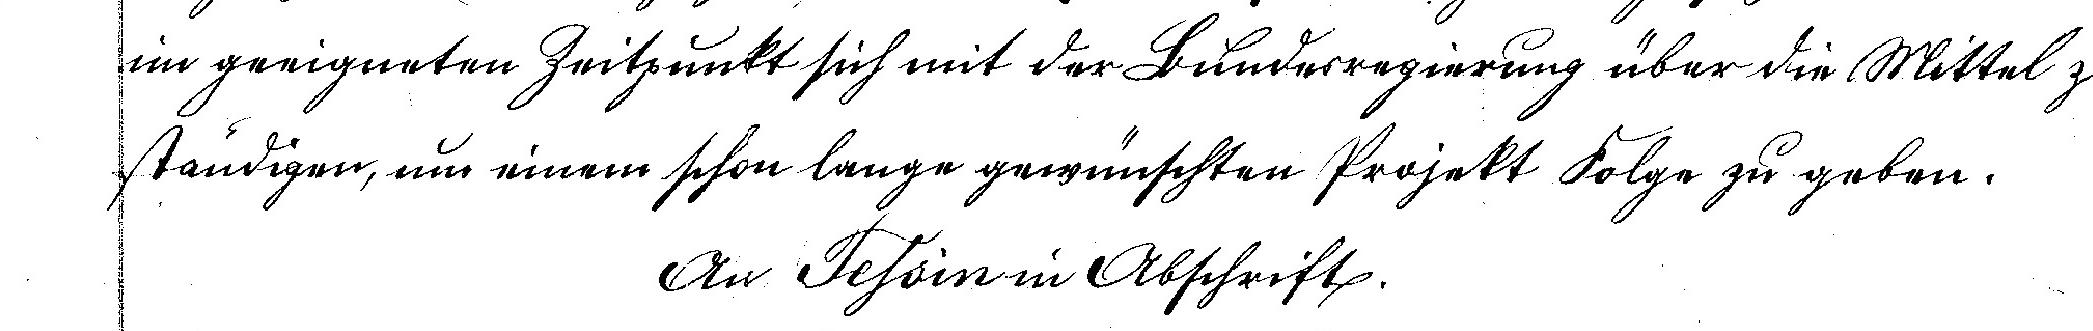 im geeigneten Zeitpunkt sich mit der Bundesregierung über die Mittel z
ständigen, um einem schon lange gewünschten Projekt Folge zu geben.
An Tessin in Abschrift.